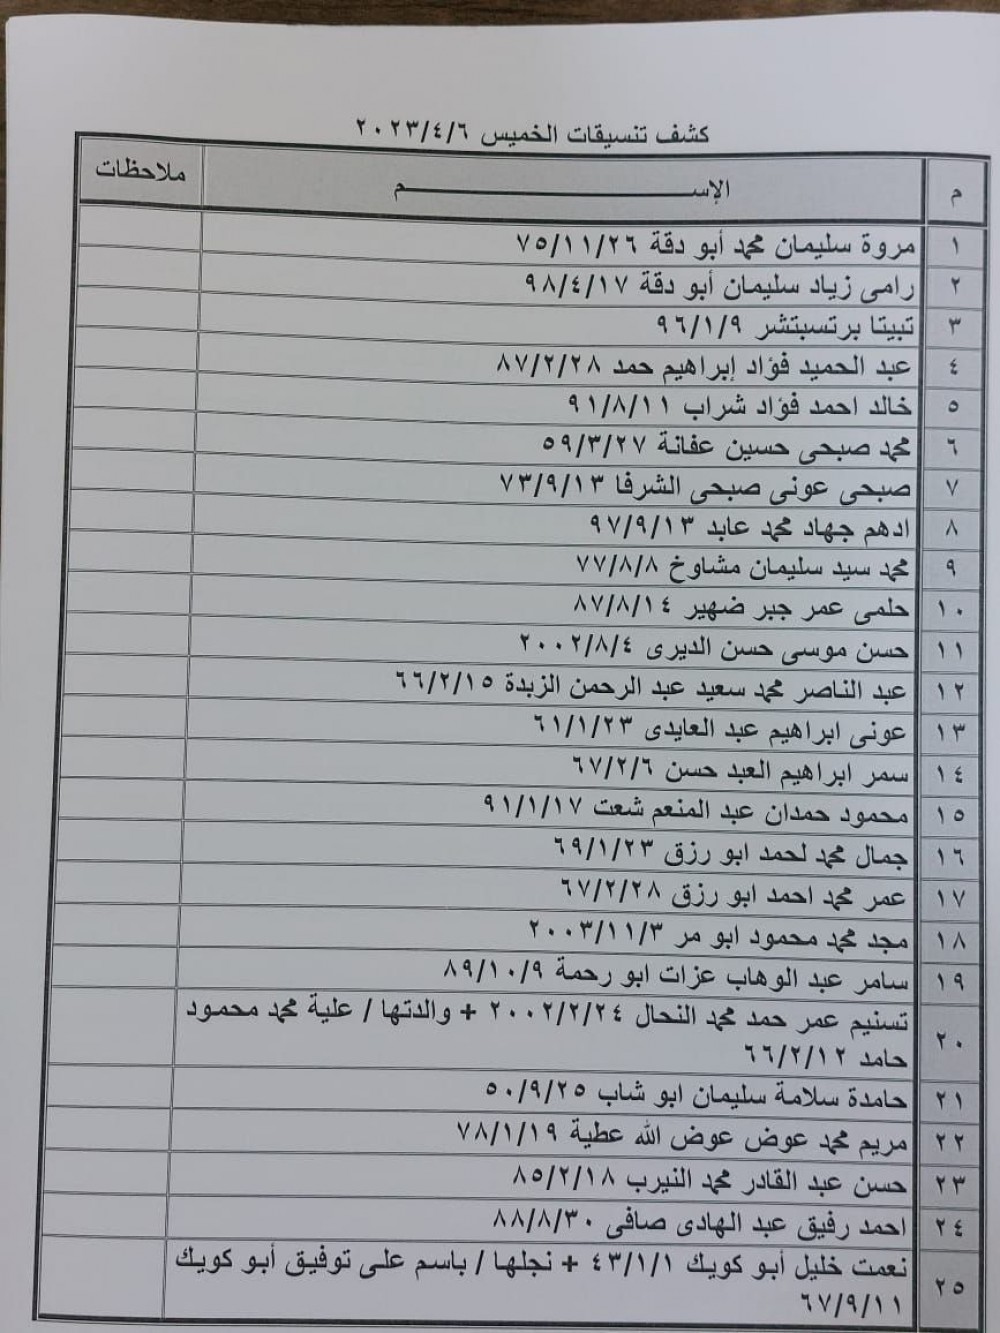 كشف تنسيقات الخميس ٢٠٢٣/٤/٦
م الإســـــــــــــــم ملاحظات
١ مروة سليمان محمد أبو دقة ٧٥/١١/٢٦
٢ رامى زياد سليمان أبو دقة ٩٨/٤/١٧
٣ تبيتا برتسبتشر ٩٦/١/٩
٤ عبد الحميد فؤاد إبراهيم حمد ٨٧/٢/٢٨
٥ خالد احمد فؤاد شراب ٩١/٨/١١
٦ محمد صبحى حسين عفانة ٥٩/٣/٢٧
٧ صبحى عونى صبحى الشرفا ٧٣/٩/١٣
٨ ادهم جهاد محمد عابد ٩٧/٩/١٣
٩ محمد سيد سليمان مشاوخ ٧٧/٨/٨
١٠ حلمى عمر جبر ضهير ٨٧/٨/١٤
١١ حسن موسى حسن الديرى ٢٠٠٢/٨/٤
١٢ عبد الناصر محمد سعيد عبد الرحمن الزبدة ٦٦/٢/١٥
١٣ عونى ابراهيم عبد العايدى ٦١/١/٢٣
١٤ سمر ابراهيم العبد حسن ٦٧/٢/٦
١٥ محمود حمدان عبد المنعم شعت ٩١/١/١٧
١٦ جمال محمد لحمد ابو رزق ٦٩/١/٢٣
١٧ عمر محمد احمد ابو رزق ٦٧/٢/٢٨
١٨ مجد محمد محمود ابو مر ٢٠٠٣/١١/٣
١٩ سامر عبد الوهاب عزات ابو رحمة ٨٩/١٠/٩
٢٠ تسنيم عمر حمد محمد النحال ٢٠٠٢/٢/٢٤ + والدتها / علية محمد محمود
حامد ٦٦/٢/١٢
٢١ حامدة سلامة سليمان ابو شاب ٥٠/٩/٢٥
٢٢ مريم محمد عوض عوض الله عطية ٧٨/١/١٩
٢٣ حسن عبد القادر محمد النيرب ٨٥/٢/١٨
٢٤ احمد رفيق عبد الهادى صافى ٨٨/٨/٣٠
٢٥ نعمت خليل أبو كويك ٤٣/١/١ + نجلها / باسم على توفيق أبو كويك
٦٧/٩/١١